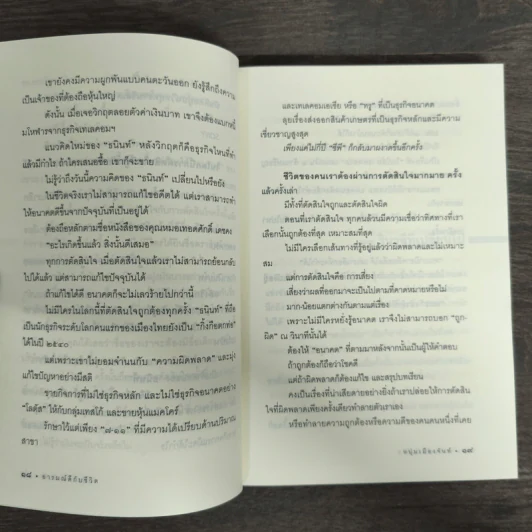 เขายังคงมีความผูกพันแบบคนตะวันออก ยังรู้สึกถึงความ
เป็นเจ้าของที่ต้องถือหุ้นใหญ่
ดังนั้น เมื่อเจอวิกฤตลอยตัวค่าเงินบาท เขาจึงต้องแบกหนี้
มโหฬารจากธุรกิจเทเลคอมฯ
แนวคิดใหม่ของ "ธนินท์" หลังวิกฤตก็คือธุรกิจไหนที่ทำ
แล้วมีกำไร ถ้าใครเสนอซื้อ เขาก็จะขาย
ไม่รู้ว่าถึงวันนี้ความคิดของ "ธนินท์" เปลี่ยนไปหรือยัง
ในชีวิตจริงเราไม่สามารถแก้ไขอดีตได้ แต่เราสามารถทำ
ให้อนาคตดีขึ้นจากปัจจุบันที่เป็นอยู่ได้
ต้องถือหลักตามชื่อหนังสือของคุณหมอเทอดศักดิ์ เดชคง
"อะไรเกิดขึ้นแล้ว สิ่งนั้นดีเสมอ"
ทุกการตัดสินใจ เมื่อตัดสินใจแล้วเราไม่สามารถย้อนกลับ
ไปได้แล้ว แต่สามารถแก้ไขปัจจุบันได้
ถ้าแก้ไขได้ดี อนาคตก็จะไม่เลวร้ายไปกว่านี้
ไม่มีใครในโลกนี้ที่ตัดสินใจถูกต้องทุกครั้ง "ธนินท์" ที่ถือ
เป็นนักธุรกิจระดับโลกคนแรกของเมืองไทยยังเป็น "กิ้งก๊อดกท่อ"
ได้ในปี ๒๕๔๐
แต่เพราะเขาไม่ยอมจำนนกับ "ความผิดพลาด" และมุ่ง
แก้ไขปัญหาอย่างมีสติ
ขายกิจการที่ไม่ใช่ธุรกิจหลัก และไม่ใช่ธุรกิจอนาคตอย่าง
"โลตัส" ให้กับกลุ่มเทสโก้ และขายหุ้นแม็คโคร์
รักษาไว้แต่เพียง "๘-๑๑" ที่มีความได้เปรียบด้านปริมาณ
สาขา
๑๘ • อารมณ์ดีกับชีวิต
และเทเลคอมเอเชีย หรือ "ทรู" ที่เป็นธุรกิจอนาคต
ลุยเรื่องส่งออกสินค้าเกษตรที่เป็นธุรกิจหลักและมีความ
เชี่ยวชาญสูงสุด
เพียงแค่ไม่กี่ปี "ซีพี" ก็กลับมาผงาดขึ้นอีกครั้ง
ชีวิตของคนเราต้องผ่านการตัดสินใจมากมาย ครั้ง
แล้วครั้งเล่า
มีทั้งที่ตัดสินใจถูกและตัดสินใจผิด
ตอนที่เราตัดสินใจ ทุกคนล้วนมีความเชื่อว่าทิศทางที่เรา
เลือกนั้นถูกต้องที่สุด เหมาะสมที่สุด
ไม่มีใครเลือกเส้นทางที่รู้อยู่แล้วว่าผิดพลาดและไม่เหมาะ
สม
แต่การตัดสินใจคือ การเสี่ยง
เสี่ยงว่าผลที่ออกมาจะเป็นไปตามที่คาดหมายหรือไม่
มาก-น้อยแตกต่างกันตามแต่เรื่อง
เพราะไม่มีใครหยั่งรู้อนาคต เราจึงไม่สามารถบอก "ถูก-
ผิด" ณ วินาทีนั้นได้
ต้องให้ "อนาคต" ที่ตามมาหลังจากนั้นเป็นผู้ให้คำตอบ
ถ้าถูกต้องก็ถือว่าโชคดี
แต่ถ้าผิดพลาดก็ต้องแก้ไข และสรุปบทเรียน
คงเป็นเรื่องที่น่าเสียดายอย่างยิ่งถ้าเราปล่อยให้การตัดสิน
ใจที่ผิดพลาดเพียงครั้งเดียวทำลายตัวเราเอง
หรือทำลายความถูกต้องหรือความดีของคนคนหนึ่งที่เคย
หนุ่มเมืองจันท์ • ๑๙